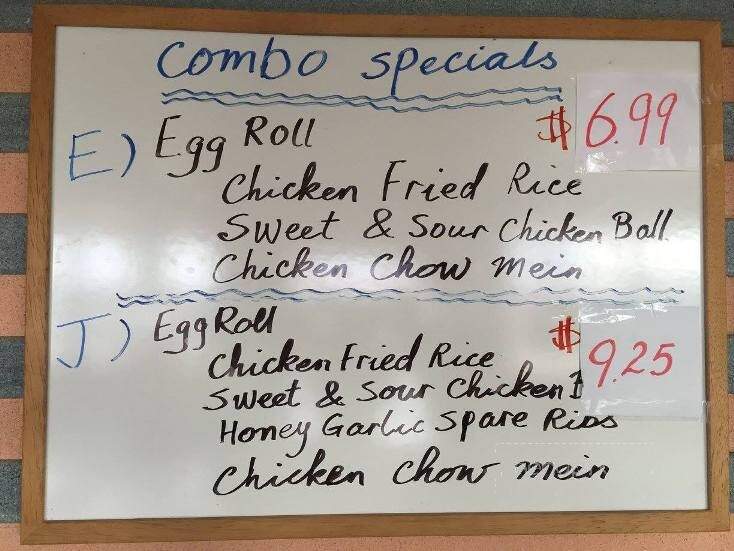 Combo Specials
E) Egg Roll $ 6.99
Chicken Fried Rice
Sweet & Sour Chicken Ball
Chicken Chow Mein
J) Egg Roll $ 9.25
Chicken Fried Rice
Sweet & Sour Chicken
Honey Garlic Spare Ribs
Chicken Chow Mein